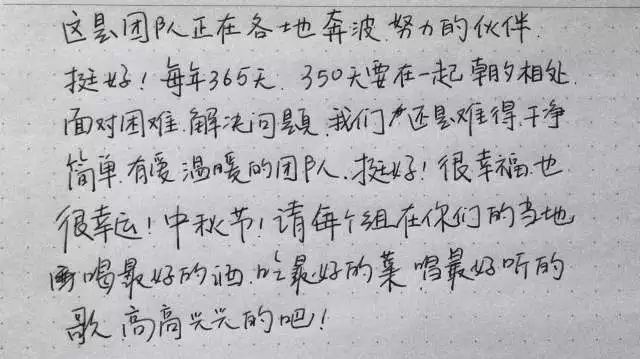 这是团队正在各地奔波努力的伙伴.
挺好！每年365天.350天要在一起朝夕相处.
面对困难.解决问题.我们还是难得.干净
简单.有爱温暖的团队.挺好！很幸福.也
很幸运！中秋节！请每个组在你们的当地
喝最好的酒.吃最好的菜唱最好听的
歌.高高兴兴的吧！